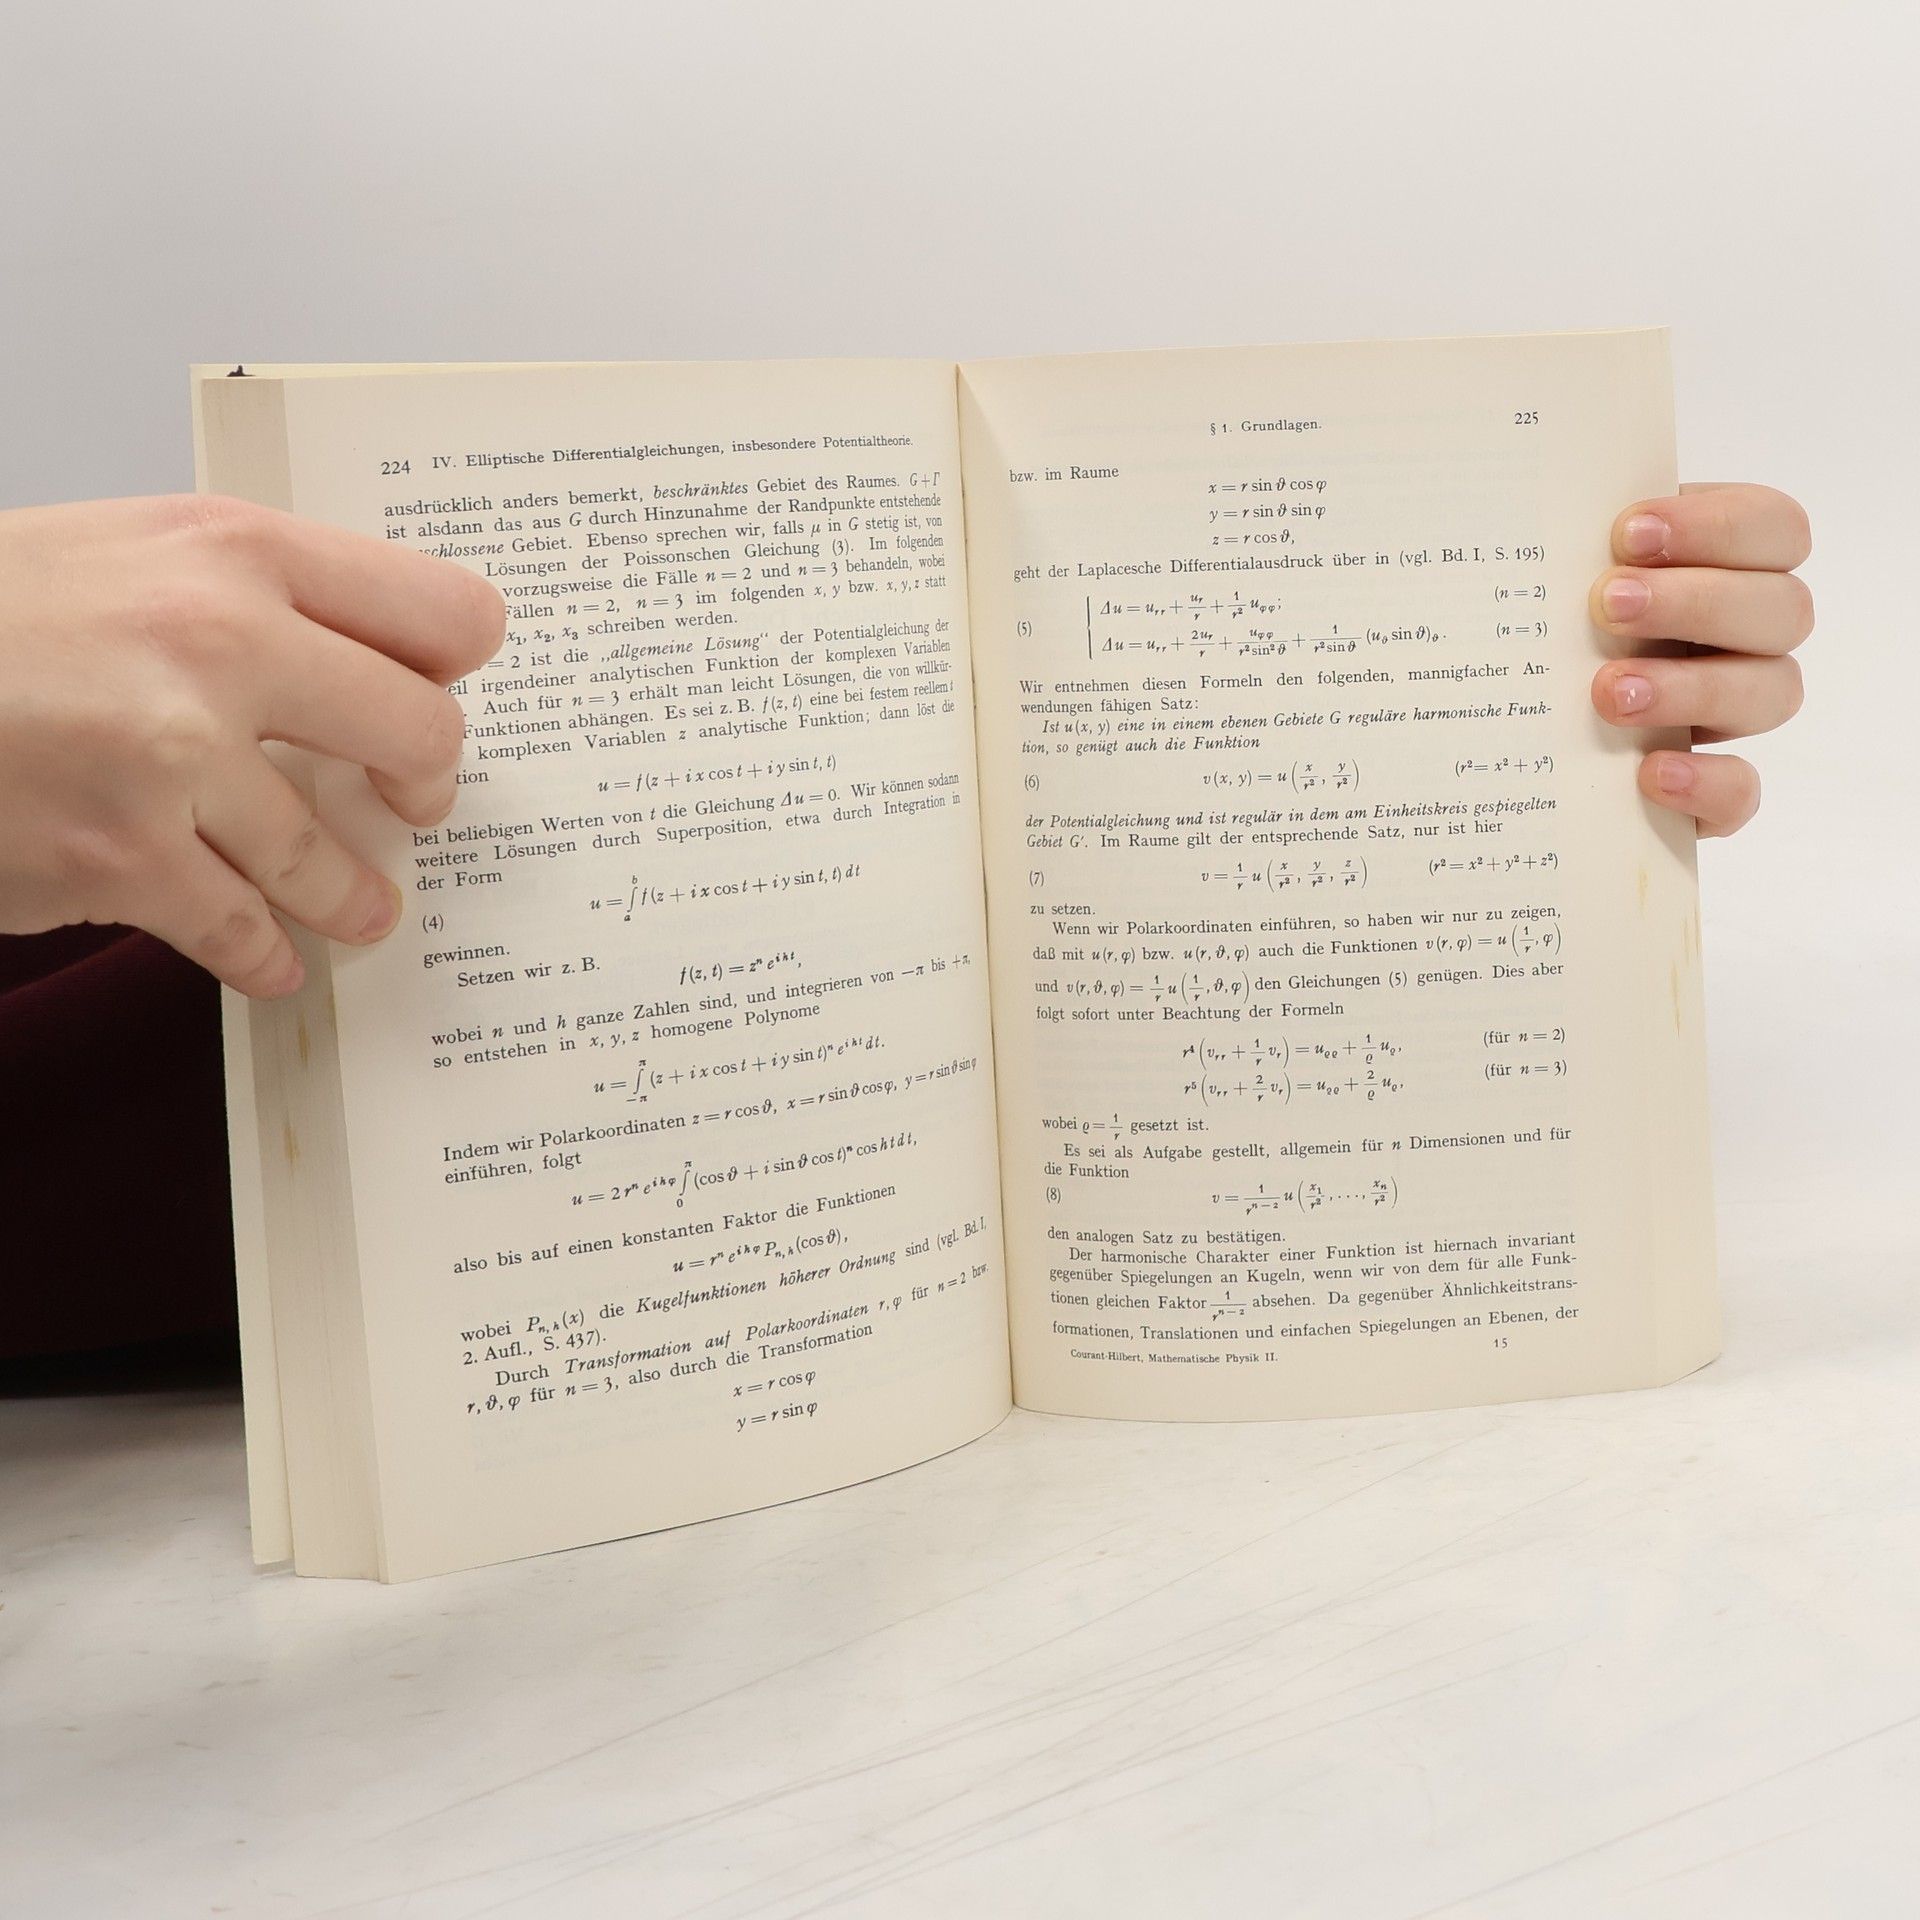 224 IV. Elliptische Differentialgleichungen, insbesondere Potentialtheorie.
ausdrücklich anders bemerkt, beschränktes Gebiet des Raumes. G+Γ
ist alsdann das aus G durch Hinzunahme der Randpunkte entstehende
schlossene Gebiet. Ebenso sprechen wir, falls μ in G stetig ist, von
Lösungen der Poissonschen Gleichung (3). Im folgenden
vorzugsweise die Fälle n = 2 und n = 3 behandeln, wobei
Fällen n = 2, n = 3 im folgenden x, y bzw. x, y, z statt
x₁, x₂, x₃ schreiben werden.
= 2 ist die „allgemeine Lösung“ der Potentialgleichung der
eil irgendeiner analytischen Funktion der komplexen Variablen
. Auch für n = 3 erhält man leicht Lösungen, die von willkür-
Funktionen abhängen. Es sei z. B. f(z, t) eine bei festem reellem t
komplexen Variablen z analytische Funktion; dann löst die
tion
u = f(z + i x cos t + i y sin t, t)
bei beliebigen Werten von t die Gleichung Δu = 0. Wir können sodann
weitere Lösungen durch Superposition, etwa durch Integration in
der Form
(4) u = ∫ₐᵇ f(z + i x cos t + i y sin t, t) dt
gewinnen.
Setzen wir z. B.
f(z, t) = zⁿ e^{iht},
wobei n und h ganze Zahlen sind, und integrieren von −π bis +π,
so entstehen in x, y, z homogene Polynome
u = ∫_{−π}^{π} (z + i x cos t + i y sin t)ⁿ e^{iht} dt.
Indem wir Polarkoordinaten z = r cos ϑ, x = r sin ϑ cos φ, y = r sin ϑ sin φ
einführen, folgt
u = 2 rⁿ e^{ihφ} ∫₀^π (cos ϑ + i sin ϑ cos t)ⁿ cos h t dt,
also bis auf einen konstanten Faktor die Funktionen
u = rⁿ e^{ihφ} P_{n,h}(cos ϑ),
wobei P_{n,h}(x) die Kugelfunktionen höherer Ordnung sind (vgl. Bd. I,
2. Aufl., S. 437).
Durch Transformation auf Polarkoordinaten r, φ für n = 2 bzw.
r, ϑ, φ für n = 3, also durch die Transformation
x = r cos φ
y = r sin φ
§ 1. Grundlagen. 225
bzw. im Raume
x = r sin ϑ cos φ
y = r sin ϑ sin φ
z = r cos ϑ,
geht der Laplacesche Differentialausdruck über in (vgl. Bd. I, S. 195)
Δu = u_{rr} + u_r/r + 1/r² u_{φφ}; (n = 2)
(5)
Δu = u_{rr} + 2u_r/r + u_{φφ}/(r² sin² ϑ) + 1/(r² sin ϑ) (u_ϑ sin ϑ)_ϑ. (n = 3)
Wir entnehmen diesen Formeln den folgenden, mannigfacher An-
wendungen fähigen Satz:
Ist u(x, y) eine in einem ebenen Gebiete G reguläre harmonische Funk-
tion, so genügt auch die Funktion
(6) v(x, y) = u(x/r², y/r²) (r² = x² + y²)
der Potentialgleichung und ist regulär in dem am Einheitskreis gespiegelten
Gebiet G′. Im Raume gilt der entsprechende Satz, nur ist hier
(7) v = 1/r u(x/r², y/r², z/r²) (r² = x² + y² + z²)
zu setzen.
Wenn wir Polarkoordinaten einführen, so haben wir nur zu zeigen,
daß mit u(r, φ) bzw. u(r, ϑ, φ) auch die Funktionen v(r, φ) = u(1/r, φ)
und v(r, ϑ, φ) = 1/r u(1/r, ϑ, φ) den Gleichungen (5) genügen. Dies aber
folgt sofort unter Beachtung der Formeln
r⁴(v_{rr} + 1/r v_r) = u_{ϱϱ} + 1/ϱ u_ϱ, (für n = 2)
r⁵(v_{rr} + 2/r v_r) = u_{ϱϱ} + 2/ϱ u_ϱ, (für n = 3)
wobei ϱ = 1/r gesetzt ist.
Es sei als Aufgabe gestellt, allgemein für n Dimensionen und für
die Funktion
(8) v = 1/r^{n−2} u(x₁/r², . . ., xₙ/r²)
den analogen Satz zu bestätigen.
Der harmonische Charakter einer Funktion ist hiernach invariant
gegenüber Spiegelungen an Kugeln, wenn wir von dem für alle Funk-
tionen gleichen Faktor 1/r^{n−2} absehen. Da gegenüber Ähnlichkeitstrans-
formationen, Translationen und einfachen Spiegelungen an Ebenen, der
Courant-Hilbert, Mathematische Physik II. 15